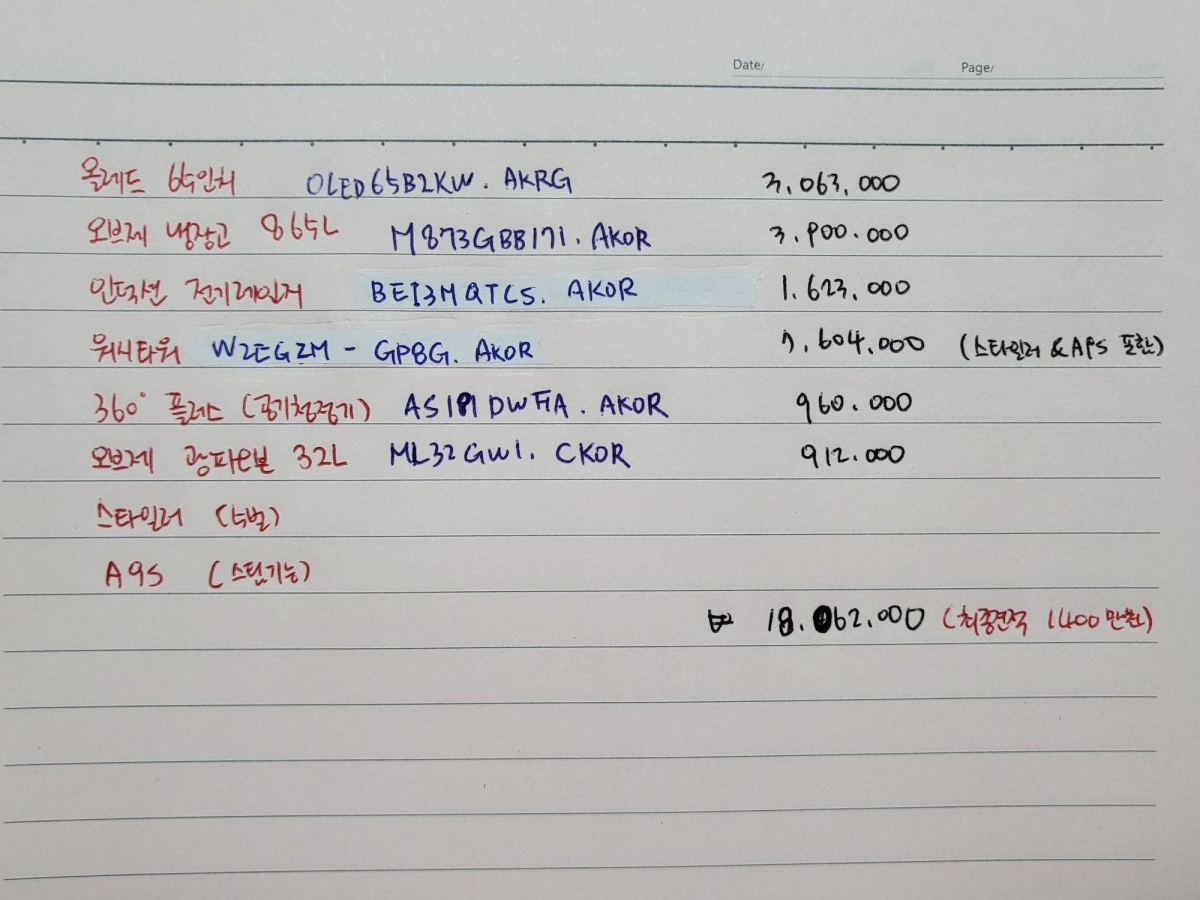 Date/ Page/
올레드 65인치 OLED65B2KW. AKRG 3,063,000
오브제 냉장고 865L M873GBB171. AKOR 3.900.000
인덕션 전기레인지 BEI3MQTCS. AKOR 1.623,000
워시타워 W2EG2M - GP8G. AKOR 7.604.000 (스타일러 & A9S 포함)
360° 플레스 (공기청정기) AS191DWFA. AKOR 960.000
오브제 광파오븐 32L ML32GW1. CKOR 912.000
스타일러 (5벌)
A9S (스팀기능)
₩ 18.062.000 (최종견적 1400만원)